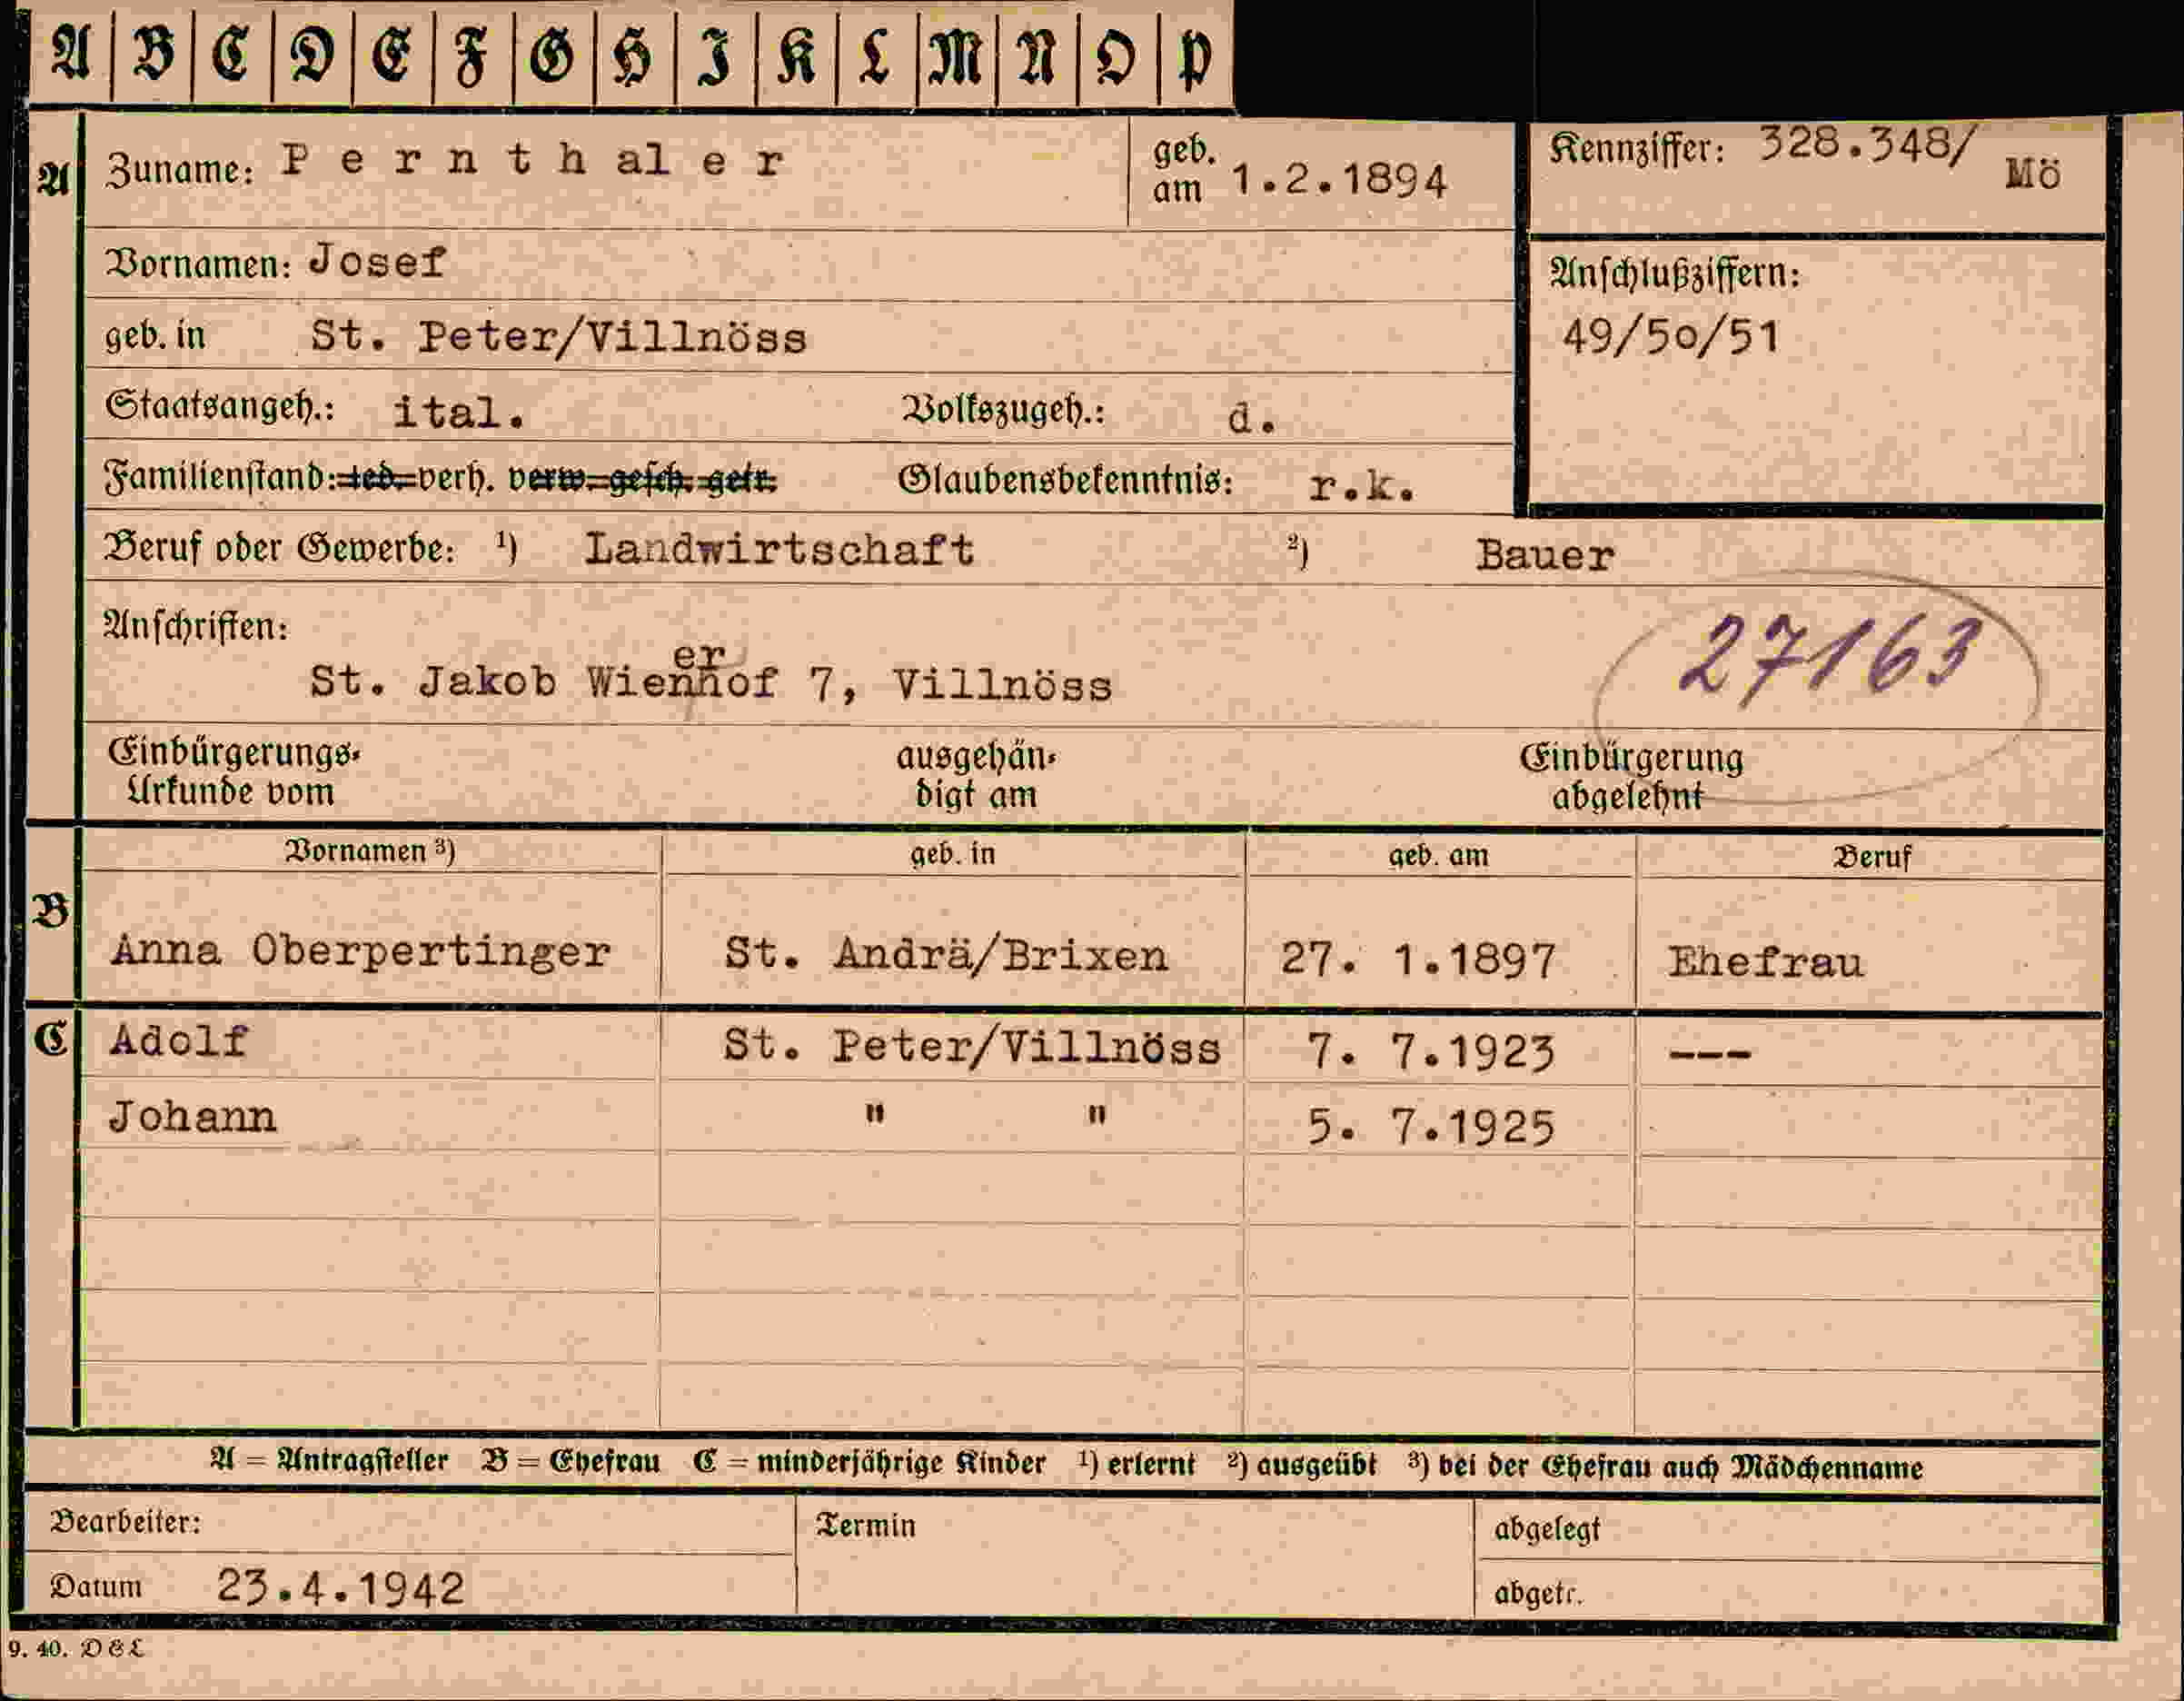 A B C D E F G H I K L M N O P
A Zuname: Pernthaler geb. am 1.2.1894 Kennziffer: 328.348/ Mö
Vornamen: Josef
Anschlußziffern:
geb. in St. Peter/Villnöss 49/50/51
Staatsangeh.: ital. Volkszugeh.: d.
Familienstand: led. verh. verw. gesch. getr. Glaubensbekenntnis: r.k.
Beruf oder Gewerbe: ¹) Landwirtschaft ²) Bauer
Anschriften:
27163
er
St. Jakob Wienhof 7, Villnöss
Einbürgerungs- ausgehän- Einbürgerung
Urkunde vom digt am abgelehnt
Vornamen ³) geb. in geb. am Beruf
B
Anna Oberpertinger St. Andrä/Brixen 27. 1.1897 Ehefrau
C Adolf St. Peter/Villnöss 7. 7.1923 ---
Johann " " 5. 7.1925
A = Antragsteller B = Ehefrau C = minderjährige Kinder ¹) erlernt ²) ausgeübt ³) bei der Ehefrau auch Mädchenname
Bearbeiter: Termin abgelegt
Datum 23.4.1942 abgetr.
9. 40. D & L